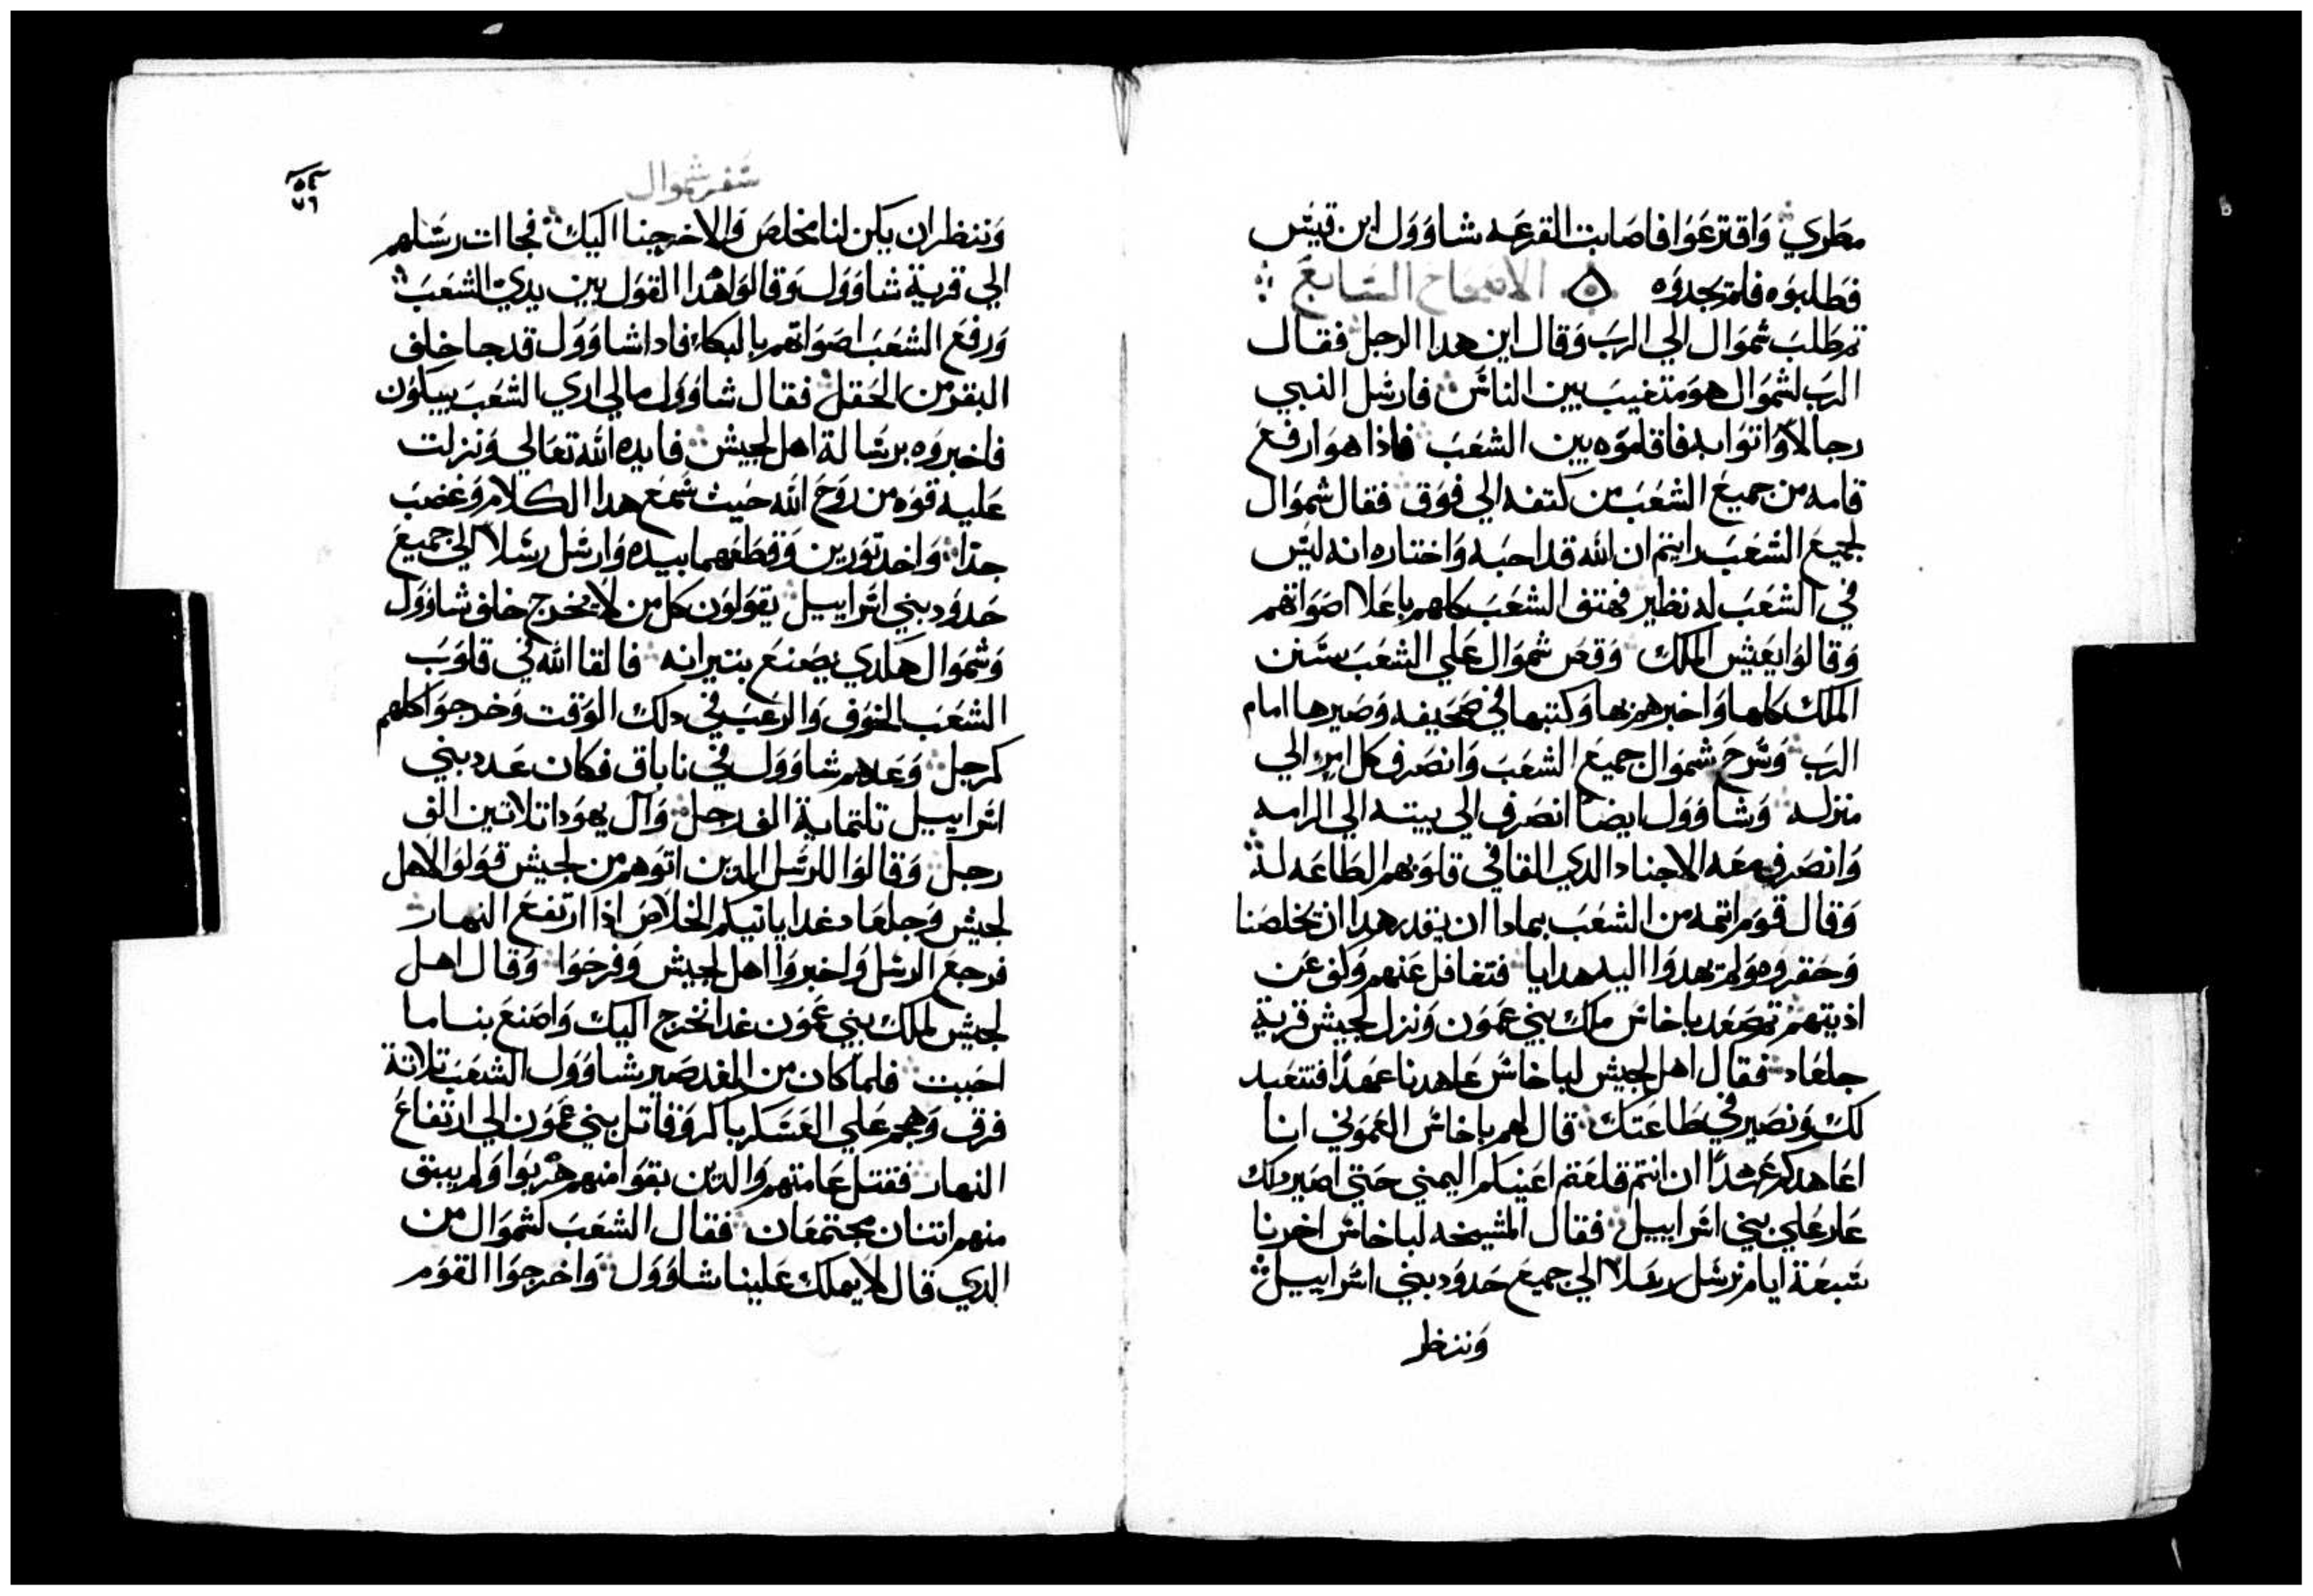 مطري واقترعوا فاصابت القرعه شاوول ابن قيس
فطلبوه فلم يجدوه الاصحاح السابع
تم طلب شموال الي الرب وقال اين هدا الرجل فقال
الرب لشموال هو متغيب بين الناس فارسل النبي
رجالا واتوا به فاقاموه بين الشعب فاذا هو ارفع
قامه من جميع الشعب من كتفه الي فوق فقال شموال
لجميع الشعب رايتم ان الله قد احبه واختاره انه ليس
في الشعب له نظير فهتف الشعب كلهم باعلا اصواتهم
وقالوا يعيش الملك وقص شموال علي الشعب سنن
الملك كلها واخبرهم بها وكتبها في صحيفه وصيرها امام
الرب وسرح شموال جميع الشعب وانصرف كل امرء الي
منزله وشاوول ايضا انصرف الي بيته الي الرامه
وانصرف معه الاجناد الدي القا في قلوبهم الطاعه له
وقال قوم اتمه من الشعب بمادا ان يقدر هدا ان يخلصنا
وحقروه ولم يهدوا اليه هدايا فتغافل عنهم وكف عن
اذيتهم تم صعد باخاش ملك بني عمون ونزل لجيش قرية
جلعاد فقال اهل لجيش لباخاش عاهدنا عهدا فنتعبد
لك ونصير في طاعتك قال لهم باخاش العموني انا
اعاهدكم عهدا ان انتم قلعتم اعينكم اليمني حتي اصير ملك
عار علي بني اسراييل فقال المشيخه لباخاش اخرنا
سبعة ايام نرسل رسلا الي جميع حدود بني اسراييل
وننظر
سفر شموال
٧٦
وننظر ان يكن لنا مخلص والا خرجنا اليك فجاات رسلهم
الي قرية شاوول وقالوا هدا القول بين يدي الشعب
ورفع الشعب اصواتهم بالبكاء فادا شاوول قد جا خلف
البقر من الحقل فقال شاوول مالي اري الشعب يبكون
فاخبروه برسالة اهل لجيش فايده الله تعالي ونزلت
عليه قوه من روح الله حيث سمع هدا الكلام وغضب
جدا واخد تورين وقطعهما بيده وارسل رسلا الي جميع
حدود بني اسراييل يقولون كل من لا يخرج خلف شاوول
وشموال هكدي يصنع بتيرانه فالقا الله في قلوب
الشعب الخوف والرعب في دلك الوقت وخرجوا كلهم
كرجل وعدهم شاوول في ناباق فكان عدد بني
اسراييل تلتماية الف رجل وآل يهودا تلاتين الف
رجل وقالوا للرسل الدين اتوهم من لجيش قولوا لاهل
لجيش وجلعاد غدا ياتيكم الخلاص اذا ارتفع النهار
فرجع الرسل واخبروا اهل لجيش وفرحوا وقال اهل
لجيش لملك بني عمون غدا نخرج اليك واصنع بنا ما
احببت فلما كان من الغد صير شاوول الشعب تلاتة
فرق وهجم علي العسكر باكر وقاتل بني عمون الي ارتفاع
النهار فقتل عامتهم والدين بقوا منهم هربوا ولم يبق
منهم اتنان مجتمعان فقال الشعب لشموال من
الدي قال لا يملك علينا شاوول واخرجوا القوم